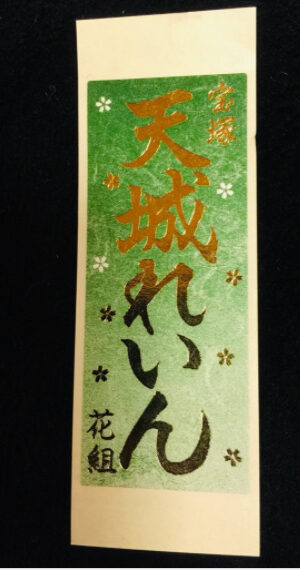 宝塚
天城れいん
花組